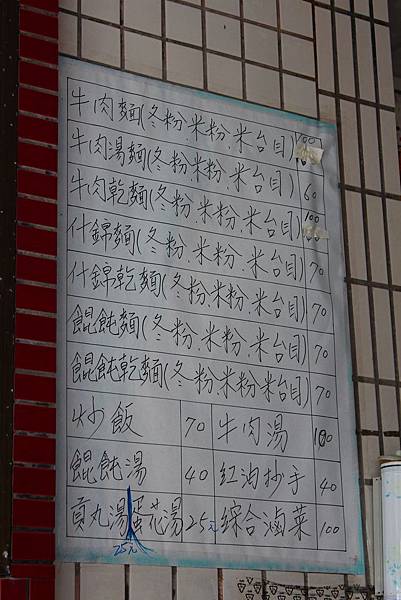 牛肉麵(冬粉.米粉.米台目) 100
牛肉湯麵(冬粉米粉.米台目) 60
牛肉乾麵(冬粉.米粉.米台目) 100
什錦麵(冬粉.米粉.米台目) 70
什錦乾麵(冬粉.米粉.米台目) 70
餛飩麵(冬粉.米粉.米台目) 70
餛飩乾麵(冬粉.米粉米台目) 70
炒飯 70 牛肉湯 100
餛飩湯 40 紅油抄手 40
貢丸湯 蛋花湯 25元 綜合滷菜 100
25元